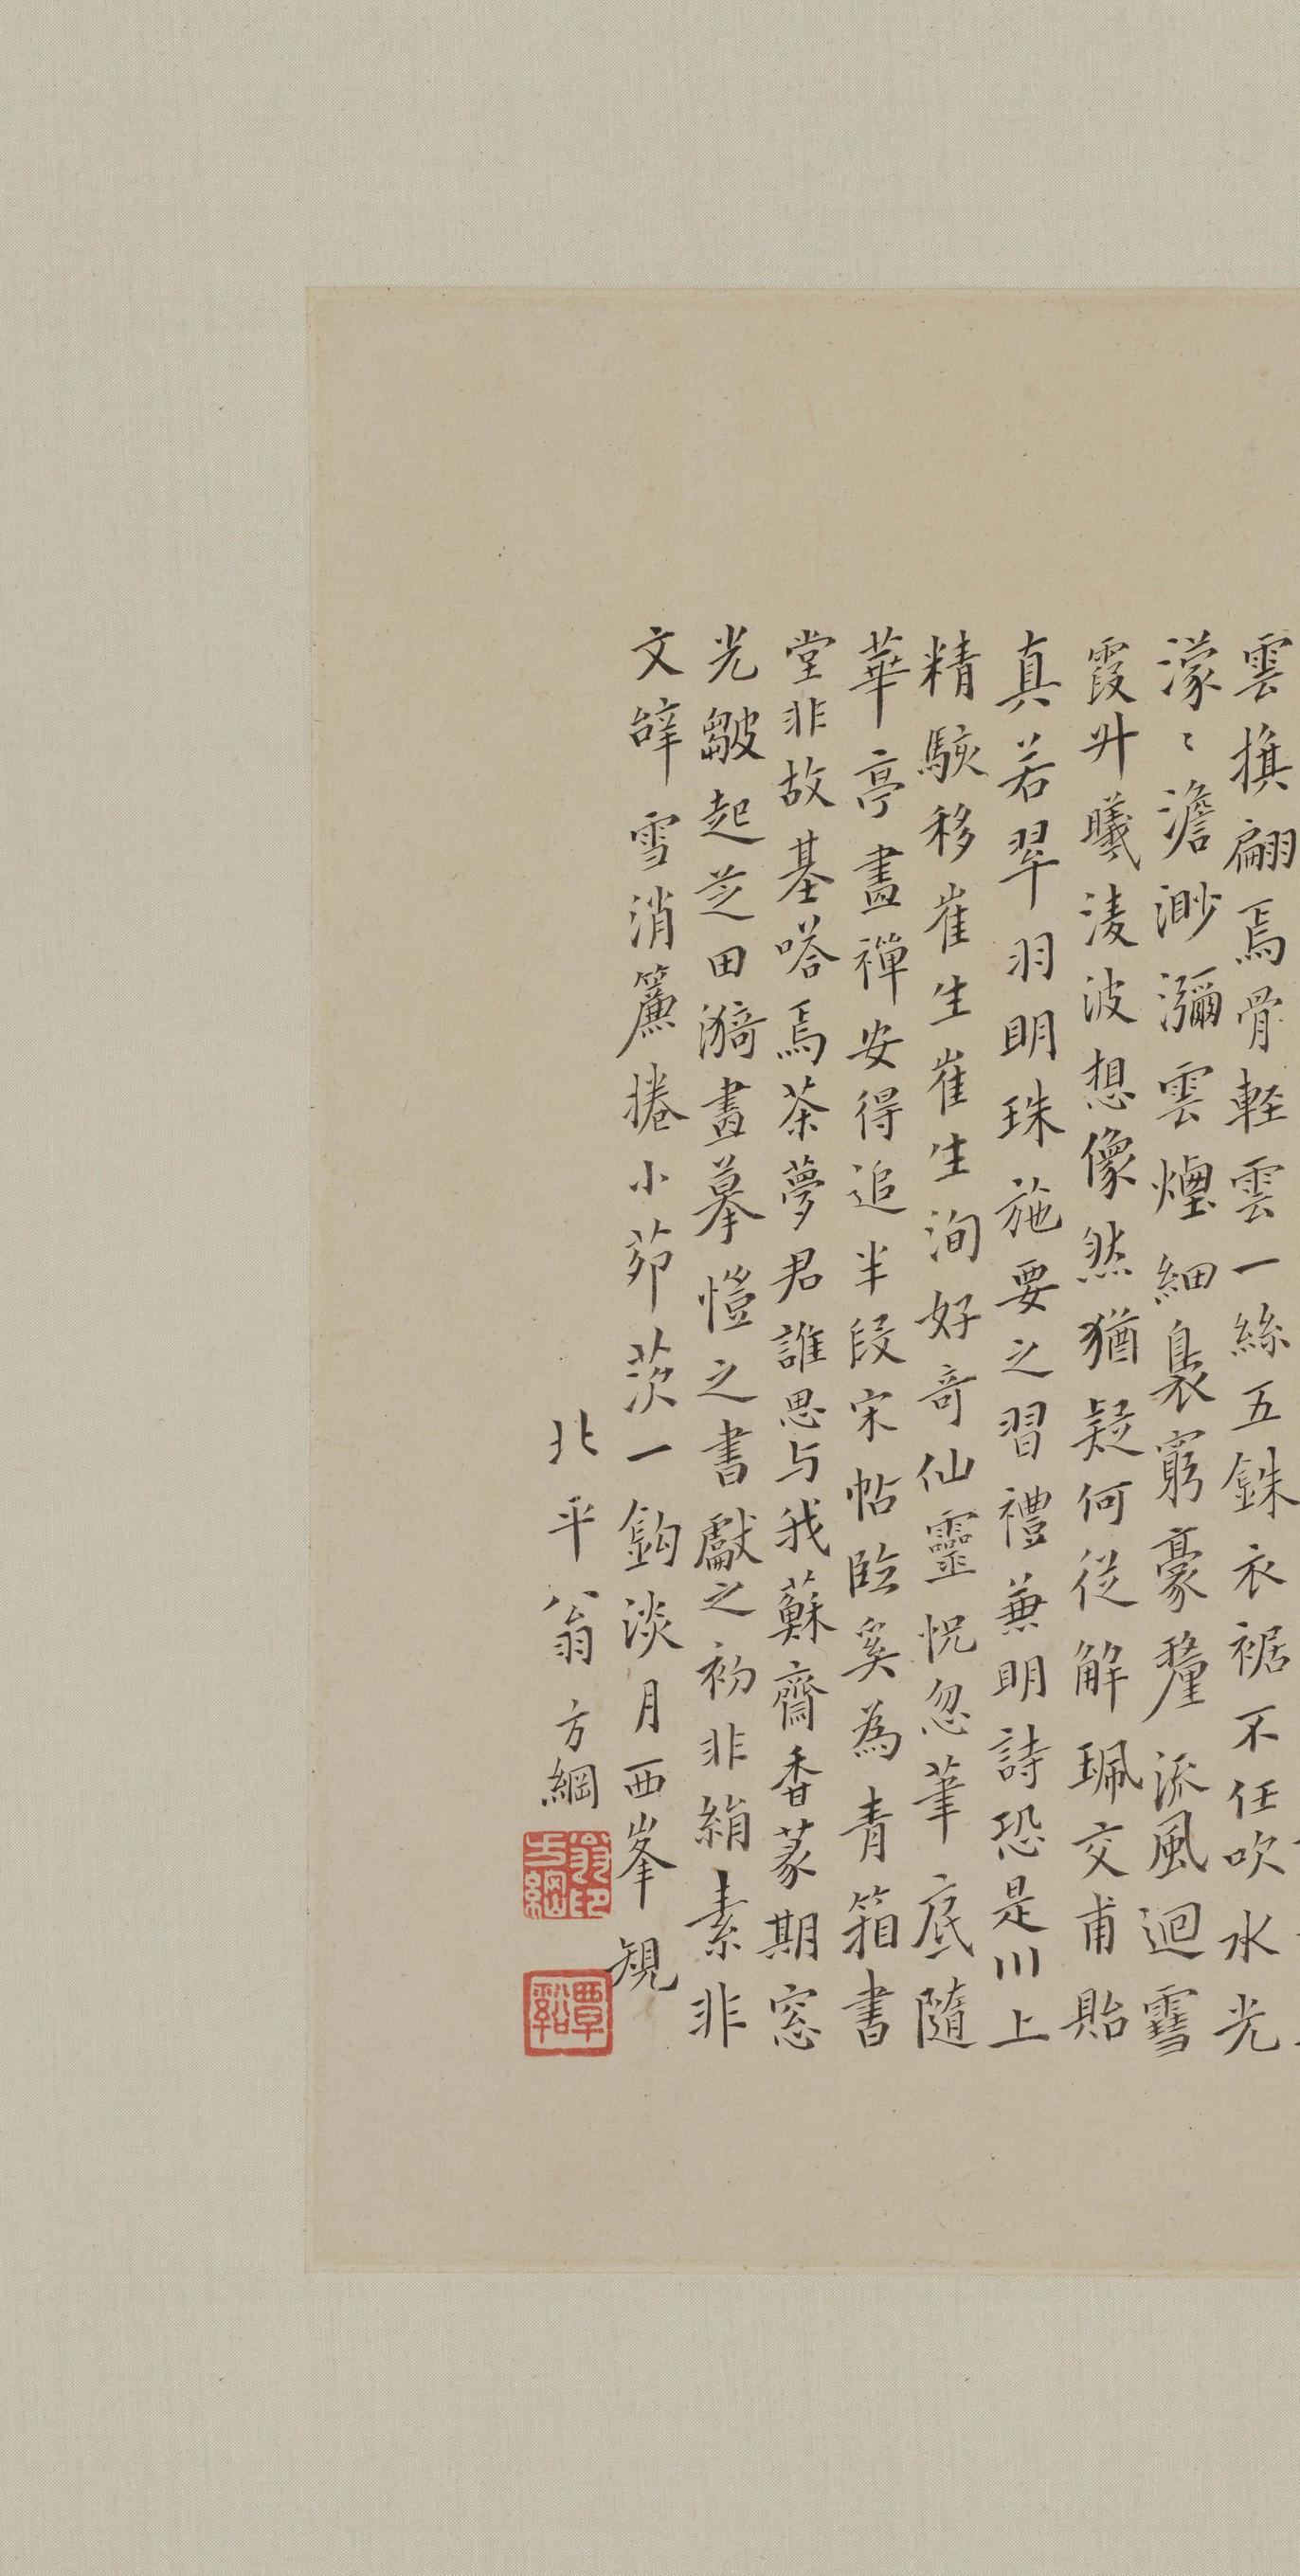 雲旗翩焉骨輕雲一絲五銖衣裾不任吹水光
濛〻澹渺瀰雲煙細裊窮豪釐流風迴雪
霞升曦淩波想像然猶疑何從解珮交甫貽
真若翠羽明珠施要之習禮兼明詩恐是川上
精駭移崔生崔生洵好奇仙靈怳忽筆底隨
華亭畫禪安得追半段宋帖臨奚為青箱書
堂非故基嗒焉荼夢君誰思与我蘇齋香篆期窓
光皺起芝田漪畫摹愷之書獻之初非絹素非
文辭雪消簾捲小茆茨一鈎淡月西峯規
北平翁方綱
翁方綱印
覃谿